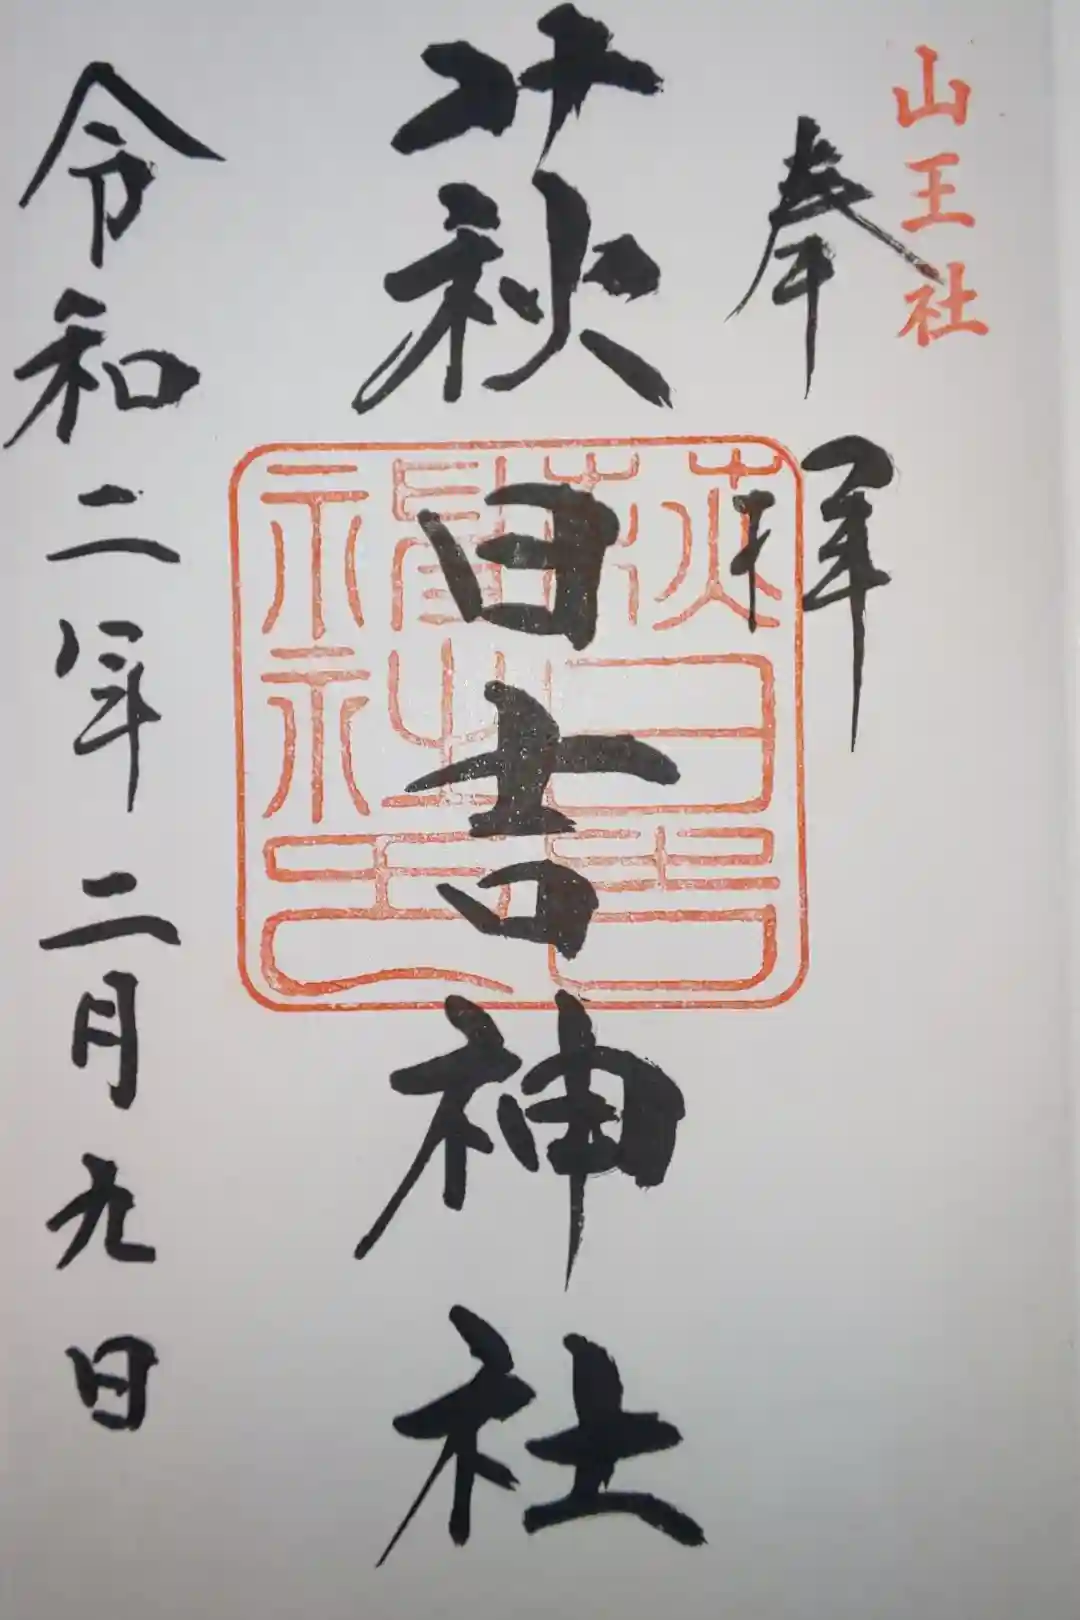 山王社
奉拝
萩日吉神社
令和二年二月九日